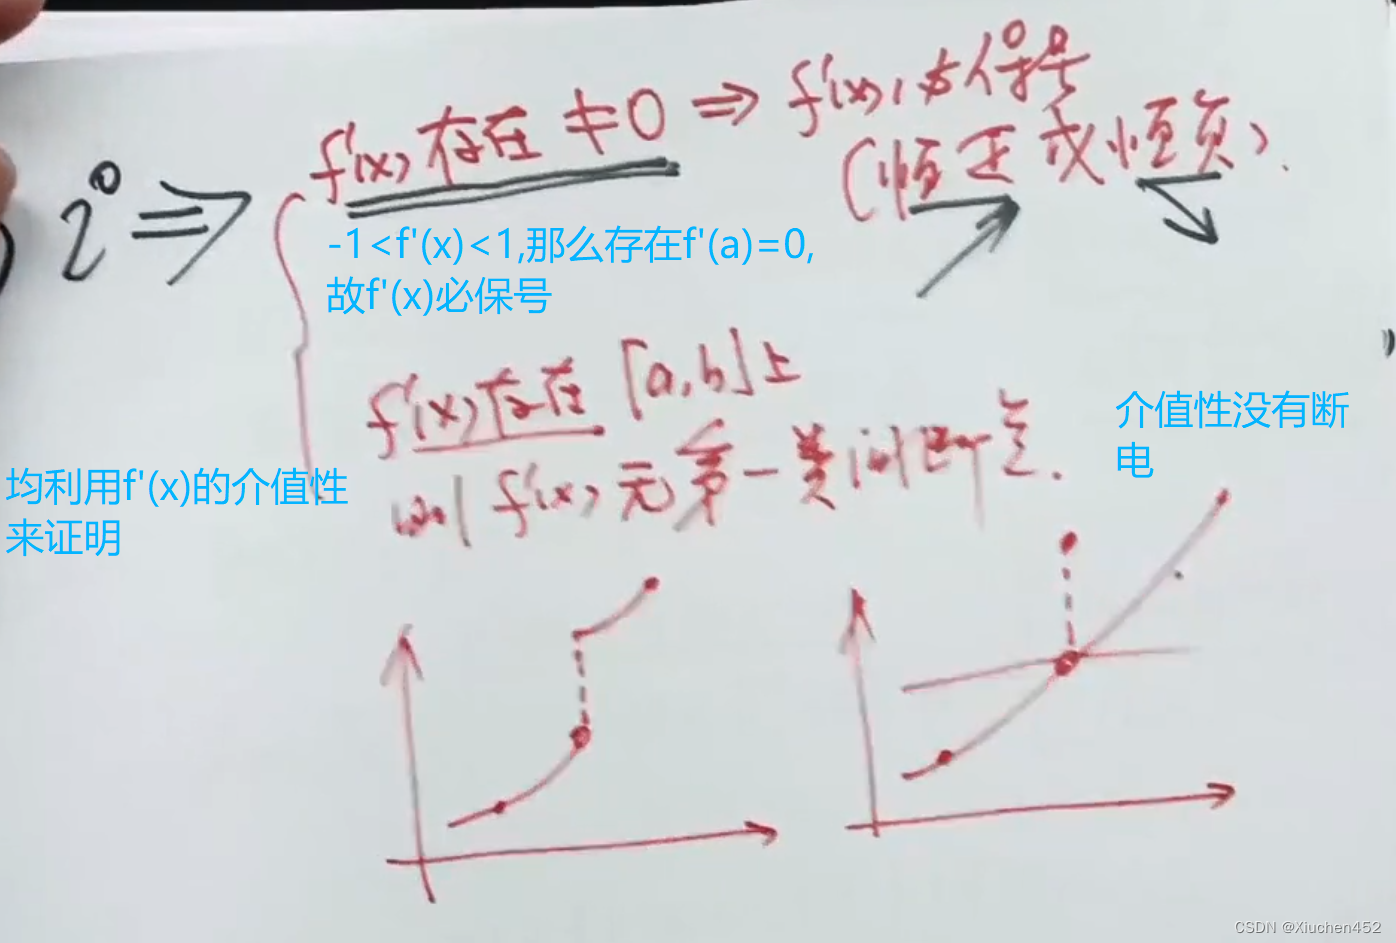 2⁰ ⇒
f'(x) 存在 ≠0 ⇒ f'(x) 必保号
(恒正或恒负).
-1<f'(x)<1,那么存在f'(a)=0,
故f'(x)必保号
f'(x)存在 [a,b]上
则 f'(x) 无第一类间断点.
介值性没有断
电
均利用f'(x)的介值性
来证明
CSDN @Xiuchen452